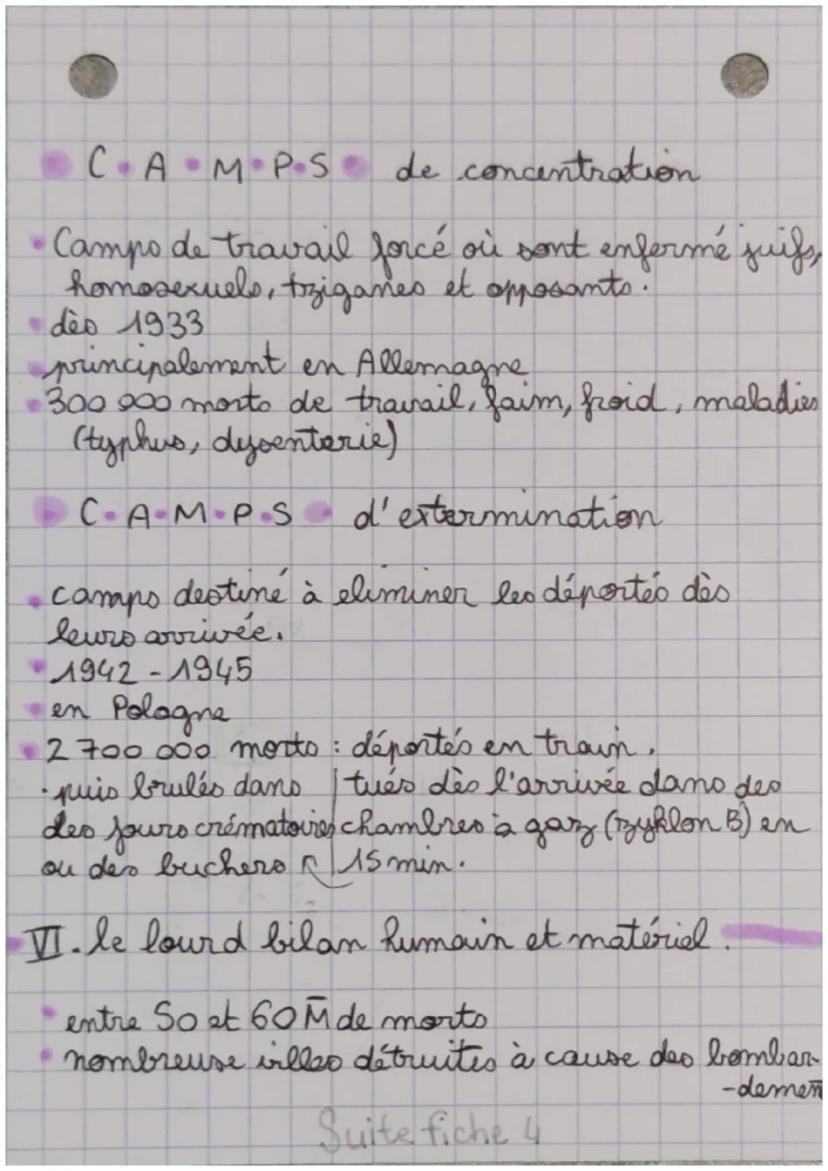 C.A.M.P.S de concentration
Camps de travail forcé où sont enfermé juifs,
homosexuels, tziganes et opposants.
dès 1933
principalement en Allemagne
300 000 morts de travail, faim, froid, maladies
(typhus, dysenterie)
C.A.M.P.S d'extermination
camps destiné à eliminer les déportés dès
leurs arrivée.
1942 - 1945
en Pologne
2 700 000 morts : déportés en train.
. puis brulés dans | tués dès l'arrivée dans des
des fours crématoires | chambres à gaz (zyklon B) en
ou des buchers | 15 min.
VI. le lourd bilan humain et matériel.
entre 50 et 60 M de morts
nombreuse villes détruites à cause des bombar-
-demen
Suite fiche 4